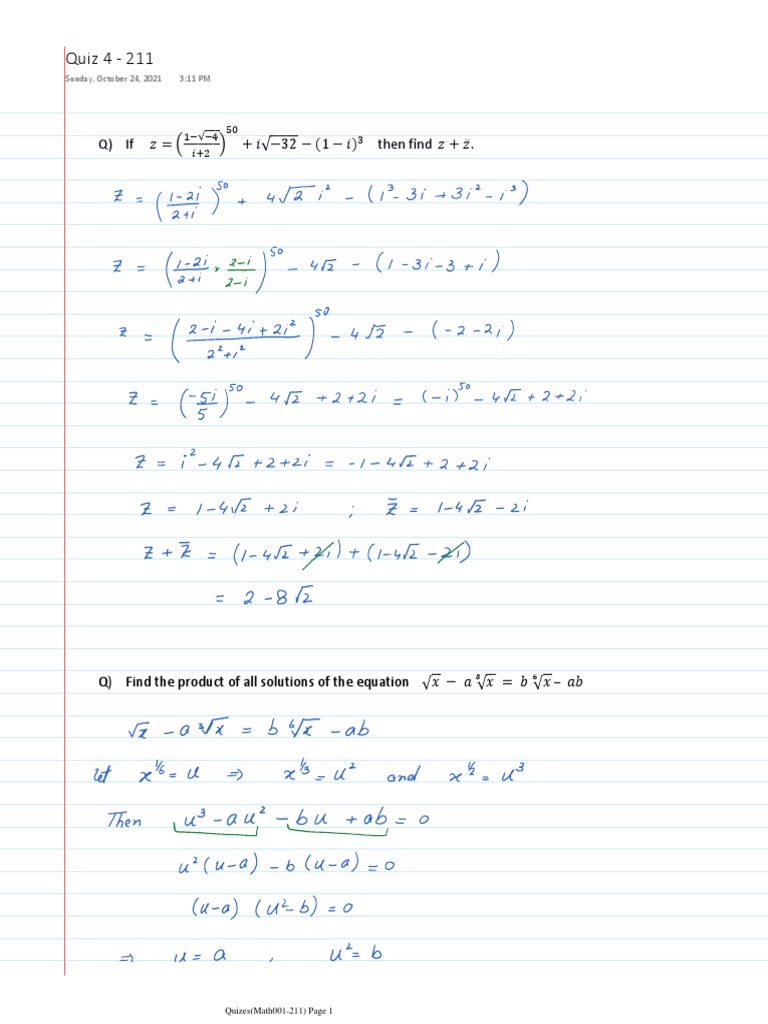 Quiz 4 - 211
Sunday, October 24, 2021 3:11 PM
Q) If z = ((1−√−4)/(i+2))^50 + i√−32 − (1 − i)³ then find z + z̄.
Z = ((1-2i)/(2+i))^50 + 4√2 i² - (1³ - 3i + 3i² - i³)
Z = ((1-2i)/(2+i) × (2-i)/(2-i))^50 - 4√2 - (1 - 3i - 3 + i)
Z = ((2-i-4i+2i²)/(2²+1²))^50 - 4√2 - (-2-2i)
Z = (-5i/5)^50 - 4√2 + 2 + 2i = (-i)^50 - 4√2 + 2 + 2i
Z = i² - 4√2 + 2 + 2i = -1 - 4√2 + 2 + 2i
Z = 1 - 4√2 + 2i ; Z̄ = 1 - 4√2 - 2i
Z + Z̄ = (1 - 4√2 + 2i) + (1 - 4√2 - 2i)
= 2 - 8√2
Q) Find the product of all solutions of the equation √x − a ∛x = b ⁶√x − ab
√x - a ∛x = b ⁶√x - ab
let x^(1/6) = u ⇒ x^(1/3) = u² and x^(1/2) = u³
Then u³ - au² - bu + ab = 0
u²(u-a) - b(u-a) = 0
(u-a) (u²-b) = 0
⇒ u = a , u² = b
Quizes(Math001-211) Page 1